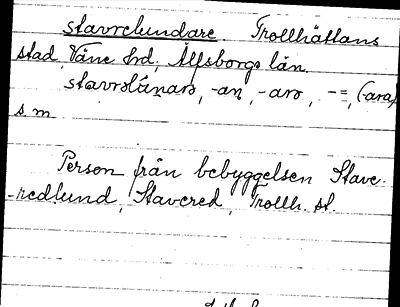 stavrelundare. Trollhättans
stad, Väne hd, Älfsborgs län.
-an, -aro, -=, (-ara)
s. m.
Person från bebyggelsen Stave-
-redlund, Stavered, Trollh. st.